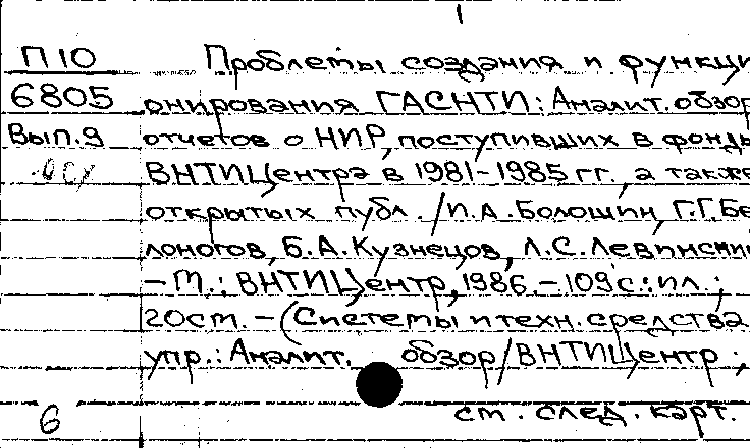 1
П10 Проблемы создания и функци
6805 онирования ГАСНТИ: Аналит. обзор
Вып.9 отчетов о НИР, поступивших в фонды
ВНТИЦентра в 1981-1985 гг., а также
открытых публ. / И.А. Болошин, Г.Г. Бе
лоногов, Б.А. Кузнецов, Л.С. Левински
- М.: ВНТИЦентр, 1986. - 109 с.: ил.;
20 см. - (Системы и техн. средства
упр.: Аналит. обзор / ВНТИЦентр ;
см. след. карт.
6